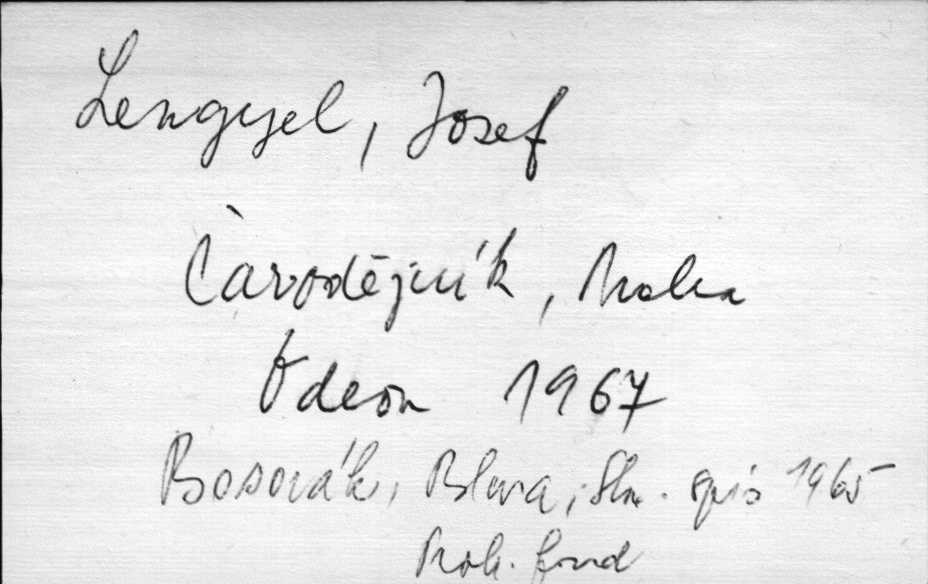 Lengyel, Josef
Čarodějník, Praha
Odeon 1967
Bosorák, Blava, Slov. spis 1965
Prok. fond